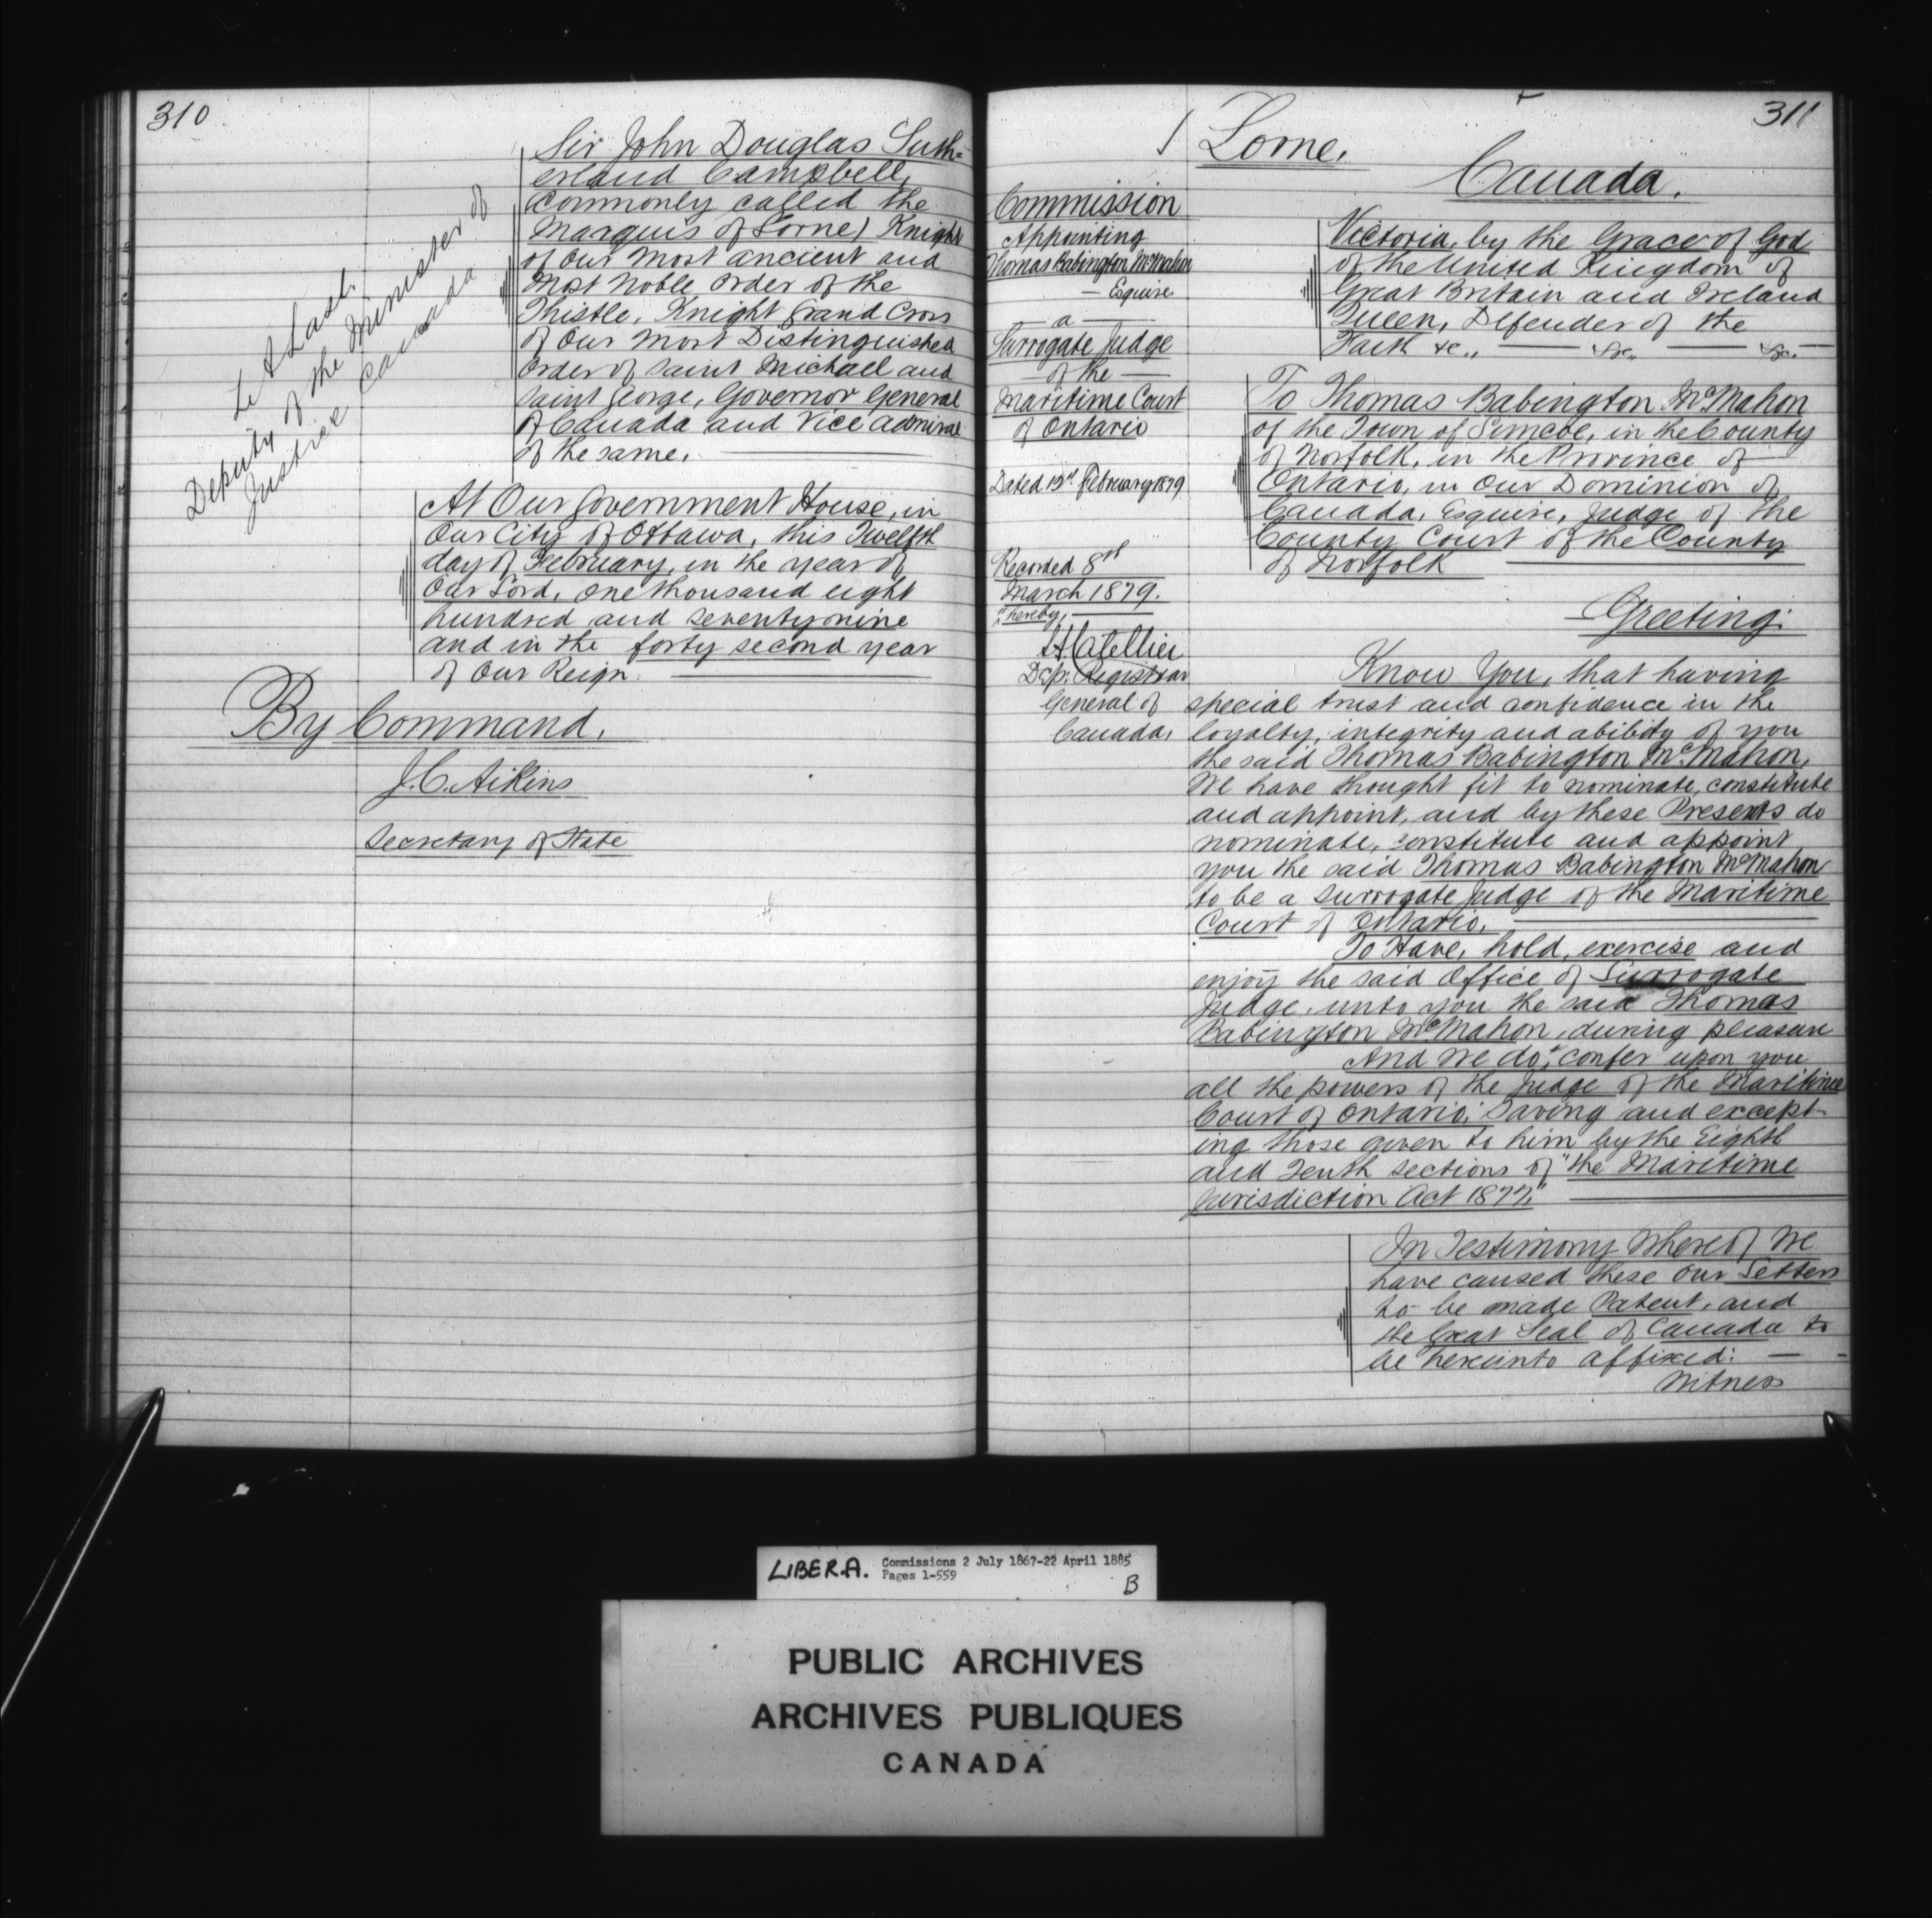 310
Sir John Douglas Suth=
erland Campbell,
Commonly called the
Marquis of Lorne) Knight
of Our Most ancient and
Most Noble Order of the
Thistle, Knight Grand Cross
of Our Most Distinguished
Order of Saint Michael and
Saint George, Governor General
of Canada and Vice Admiral
of the same.
Deputy of the Minister of
Justice Canada
At Our Government House, in
Our City of Ottawa, this Twelfth
day of February, in the year of
Our Lord, one thousand eight
hundred and seventy nine
and in the forty second year
of Our Reign
By Command,
J.C. Aikins
Secretary of State
311
Lorne.
Canada.
Commission
Appointing
Thomas Babington McMahon
— Esquire
— a —
Surrogate Judge
— of the —
Maritime Court
of Ontario
Dated 12th February 1879
Recorded 8th
March 1879.
Dep. Registrar
General of
Canada,
Victoria, by the Grace of God
of the United Kingdom of
Great Britain and Ireland
Queen, Defender of the
Faith &c., — &c. — &c. —
To Thomas Babington McMahon
of the Town of Simcoe, in the County
of Norfolk, in the Province of
Ontario, in Our Dominion of
Canada, Esquire, Judge of the
County Court of the County
of Norfolk
Greeting:
Know You, that having
special trust and confidence in the
loyalty, integrity and ability of you
the said Thomas Babington McMahon,
We have thought fit to nominate, constitute
and appoint, and by these Presents do
nominate, constitute and appoint
you the said Thomas Babington McMahon
to be a Surrogate Judge of the Maritime
Court of Ontario.
To Have, hold, exercise and
enjoy the said Office of Surrogate
Judge, unto you the said Thomas
Babington McMahon, during pleasure
And We do, confer upon you
all the powers of the Judge of the Maritime
Court of Ontario; Saving and except-
ing those given to him by the Eighth
and Tenth sections of "the Maritime
Jurisdiction Act 1877."
In Testimony Whereof We
have caused these Our Letters
to be made Patent, and
the Great Seal of Canada to
be hereunto affixed: —
Witness
LIBER.A. Commissions 2 July 1867-22 April 1885
Pages 1-559
B
PUBLIC ARCHIVES
ARCHIVES PUBLIQUES
CANADA